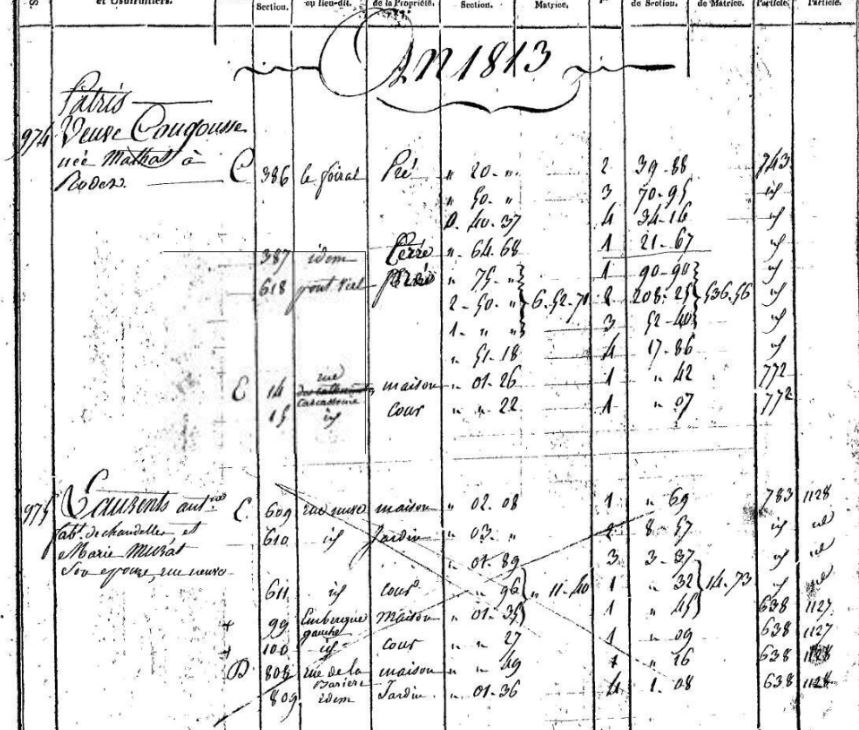 et Usufruitiers. Section. ou lieu-dit. de la Propriété. Section. Matrice. de Section. de Matrice. Particle. Particle.
AN 1813
Patris
974 Veuve Cougousse
née Mathat à C 386 le foiral Pré " 20 - " 2 39-88 743
Rodez " 50 - " 3 70-95 id
" 40-37 4 34-16 id
387 idem Terre " 64-68 1 21-67 id
618 pont Viel Pré " 75 - " 1 90-90 id
2-50 - " 6-52-71 2 208-25 536-56 id
1 - " " 3 52-40 id
" 51-18 4 17-86 id
rue
E 14 maison " 01-26 1 " 42 772
Carcassonne
15 id Cour " " 22 1 " 07 772
975 Laurents ant.ne E 609 rue neuve maison " 02-08 1 " 69 783 1128
fab.t de chandelles et 610 id Jardin " 03 - " 2 8-57 id id
Marie Murat " 01-89 3 3-37 id id
Son epouse, rue neuve
611 id cour " 96 " 11-40 1 " 32 14-73 id id
+ 99 Embergue gauche maison " 01-35 1 " 45 638 1127
+ 100 id cour " " 27 1 " 09 638 1127
D 808 rue de la Bariere maison " " 49 1 " 16 638 1128
809 idem Jardin " 01-36 4 1-08 638 1128